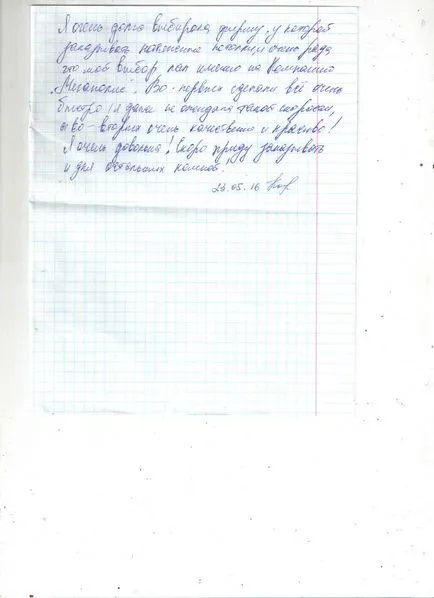 Я очень долго выбирала фирму, у которой
заказывать натяжные потолки, и очень рада
что мой выбор пал именно на Компанию
"Мегаполис". Во-первых сделали всё очень
быстро, я даже не ожидала такой скорости,
а во-вторых очень качественно и красиво!
Я очень довольна! Скоро приду заказывать
и для остальных комнат!
23.05.16